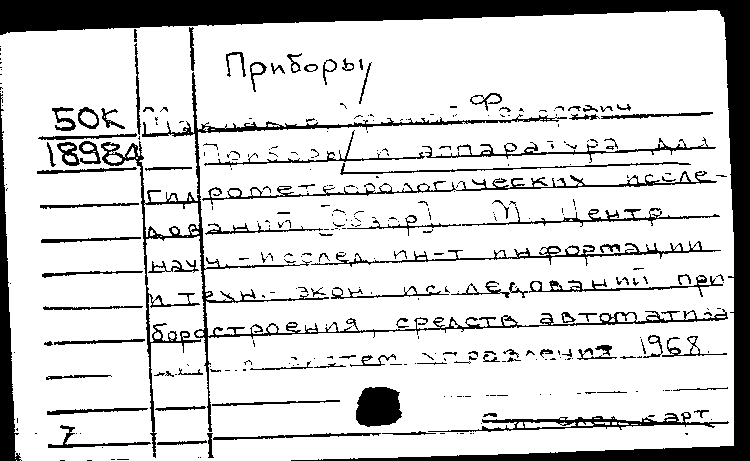 Приборы
50К
18984
Федорович
Приборы и аппаратура для
гидрометеорологических иссле-
дований. [Обзор]. М., Центр.
науч.-исслед. ин-т информации
и техн.-экон. исследований при-
боростроения, средств автоматиза-
ции и систем управления, 1968.
См. след. карт.
7